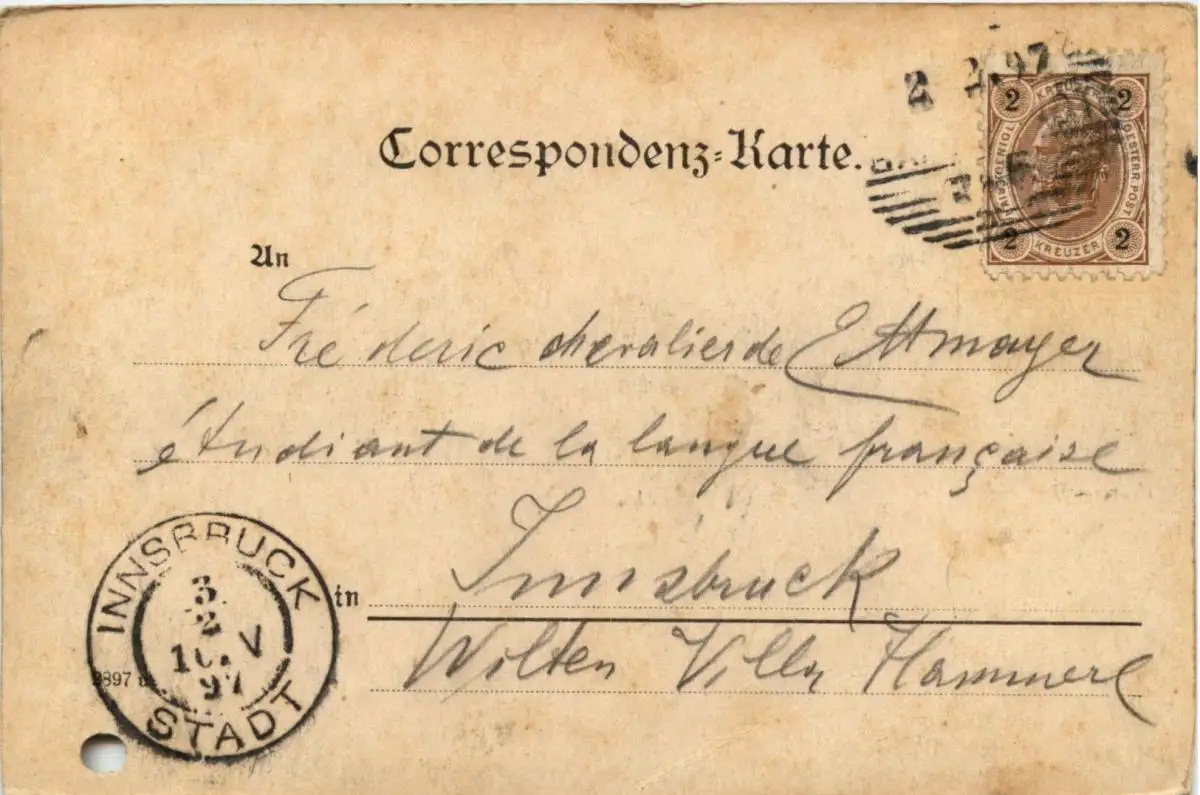 2 2.97
2 KREUZER 2
KAIS. KOENIGL. OESTERR. POST
2 KREUZER 2
Correspondenz-Karte.
An
Fréderic chevalier de Ettmayer
étudiant de la langue française
in Innsbruck
Wilten Villa Hammerl
INNSBRUCK
3
2
97
STADT